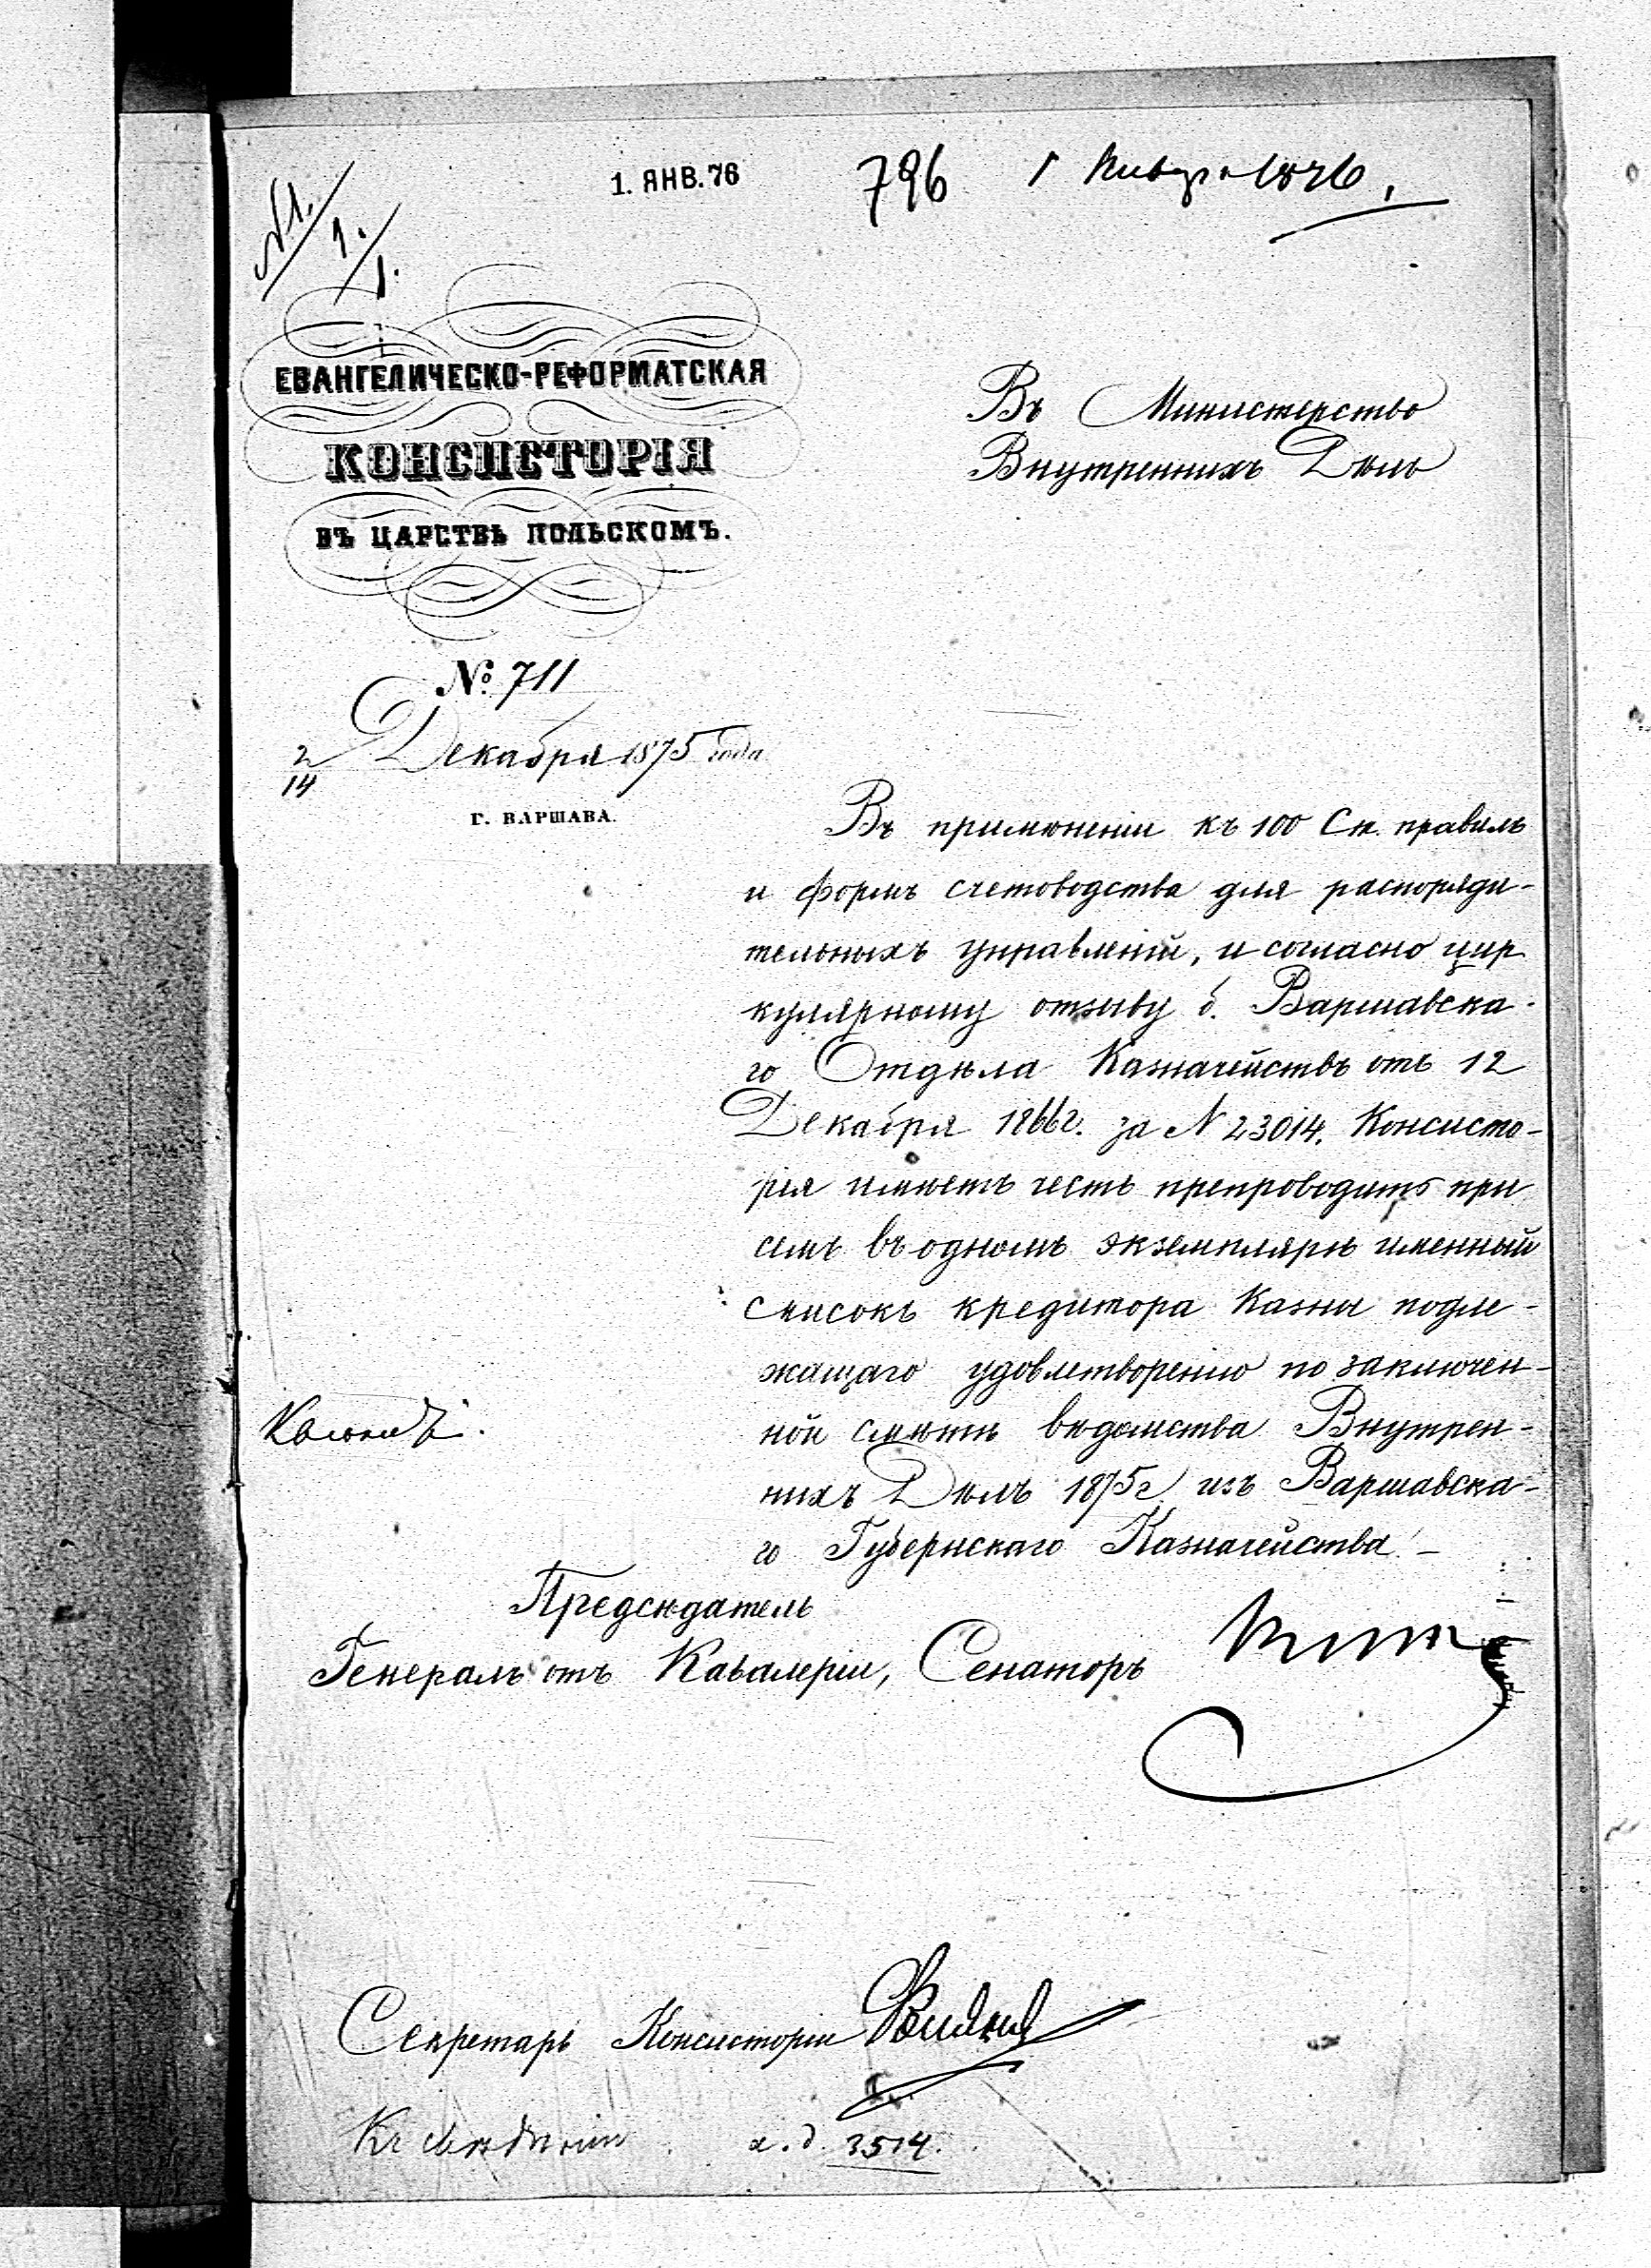 1. ЯНВ. 76
796
1 Января 1876.
№ 1.
1.
1.
ЕВАНГЕЛИЧЕСКО-РЕФОРМАТСКАЯ
КОНСИСТОРІЯ
ВЪ ЦАРСТВѢ ПОЛЬСКОМЪ.
№ 711
2/14 Декабря 1875 года
Г. ВАРШАВА.
Въ Министерство
Внутреннихъ Дѣлъ
Въ примѣненіи къ 100 Ст. правилъ
и формъ счетоводства для распоряди-
тельныхъ управленій, и согласно цир
кулярному отзыву б. Варшавска-
го Отдѣла Казначействъ отъ 12
Декабря 1866 г. за N 23014. Консисто-
рія имѣетъ честь препроводить при
семъ въ одномъ экземплярѣ именный
списокъ кредитора Казны подле-
жащаго удовлетворенію по заключен-
ной смѣтѣ вѣдомства Внутрен-
нихъ Дѣлъ 1875 г изъ Варшавска-
го Губернскаго Казначейства. —
Предсѣдатель
Генералъ отъ Кавалеріи, Сенаторъ
Секретарь Консисторіи
Къ свѣдѣнію
3514.